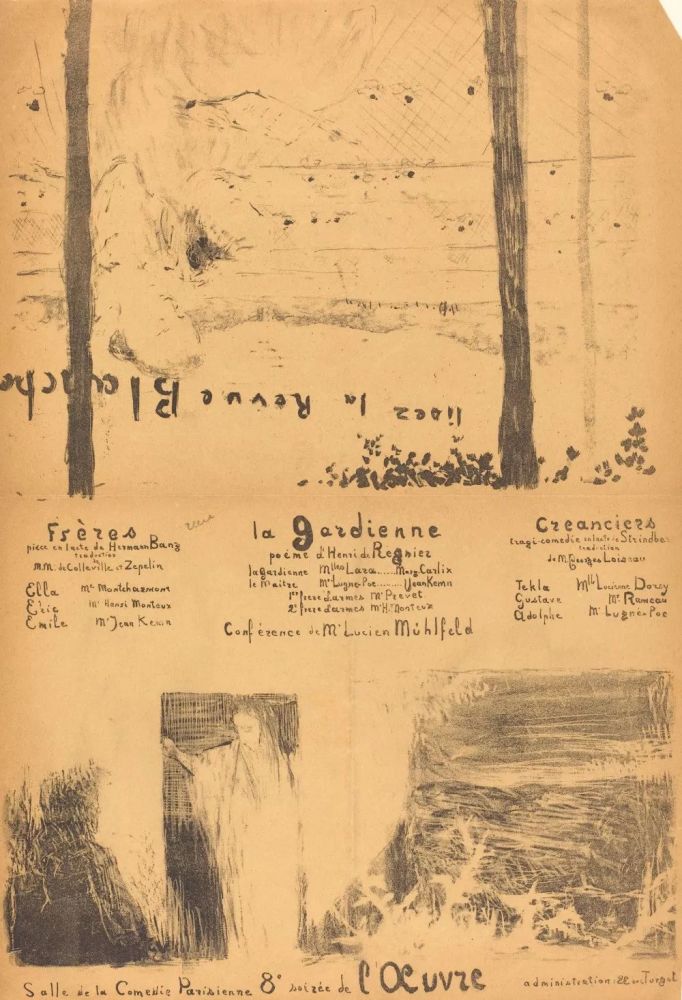 lisez la Revue Blanche
Frères
piece en 1 acte de Hermann Bang
traduction
de
M.M. de Colleville et Zepelin
Ella Me Montcharmont
Eric Mr Henri Monteux
Emile Mr Jean Kemm
la gardienne
poéme d'Henri de Regnier
la gardienne Mlles Lara.....Marg Carlix
le Maitre Mr Lugné-Poe........Jean Kemm
1er frere d'armes Mr Prevet
2e frere d'armes Mr H. Monteux
Conférence de Mr Lucien Mühlfeld
Creanciers
tragi-comedie en 1 acte de Strindberg
traduction
de M. Georges Loiseau
Tekla Mlle Lucienne Dorsy
Gustave Mr Rameau
Adolphe Mr Lugné-Poe
Salle de la Comedie Parisienne 8e soirée de l'Œuvre
administration: 22 rue Turgot